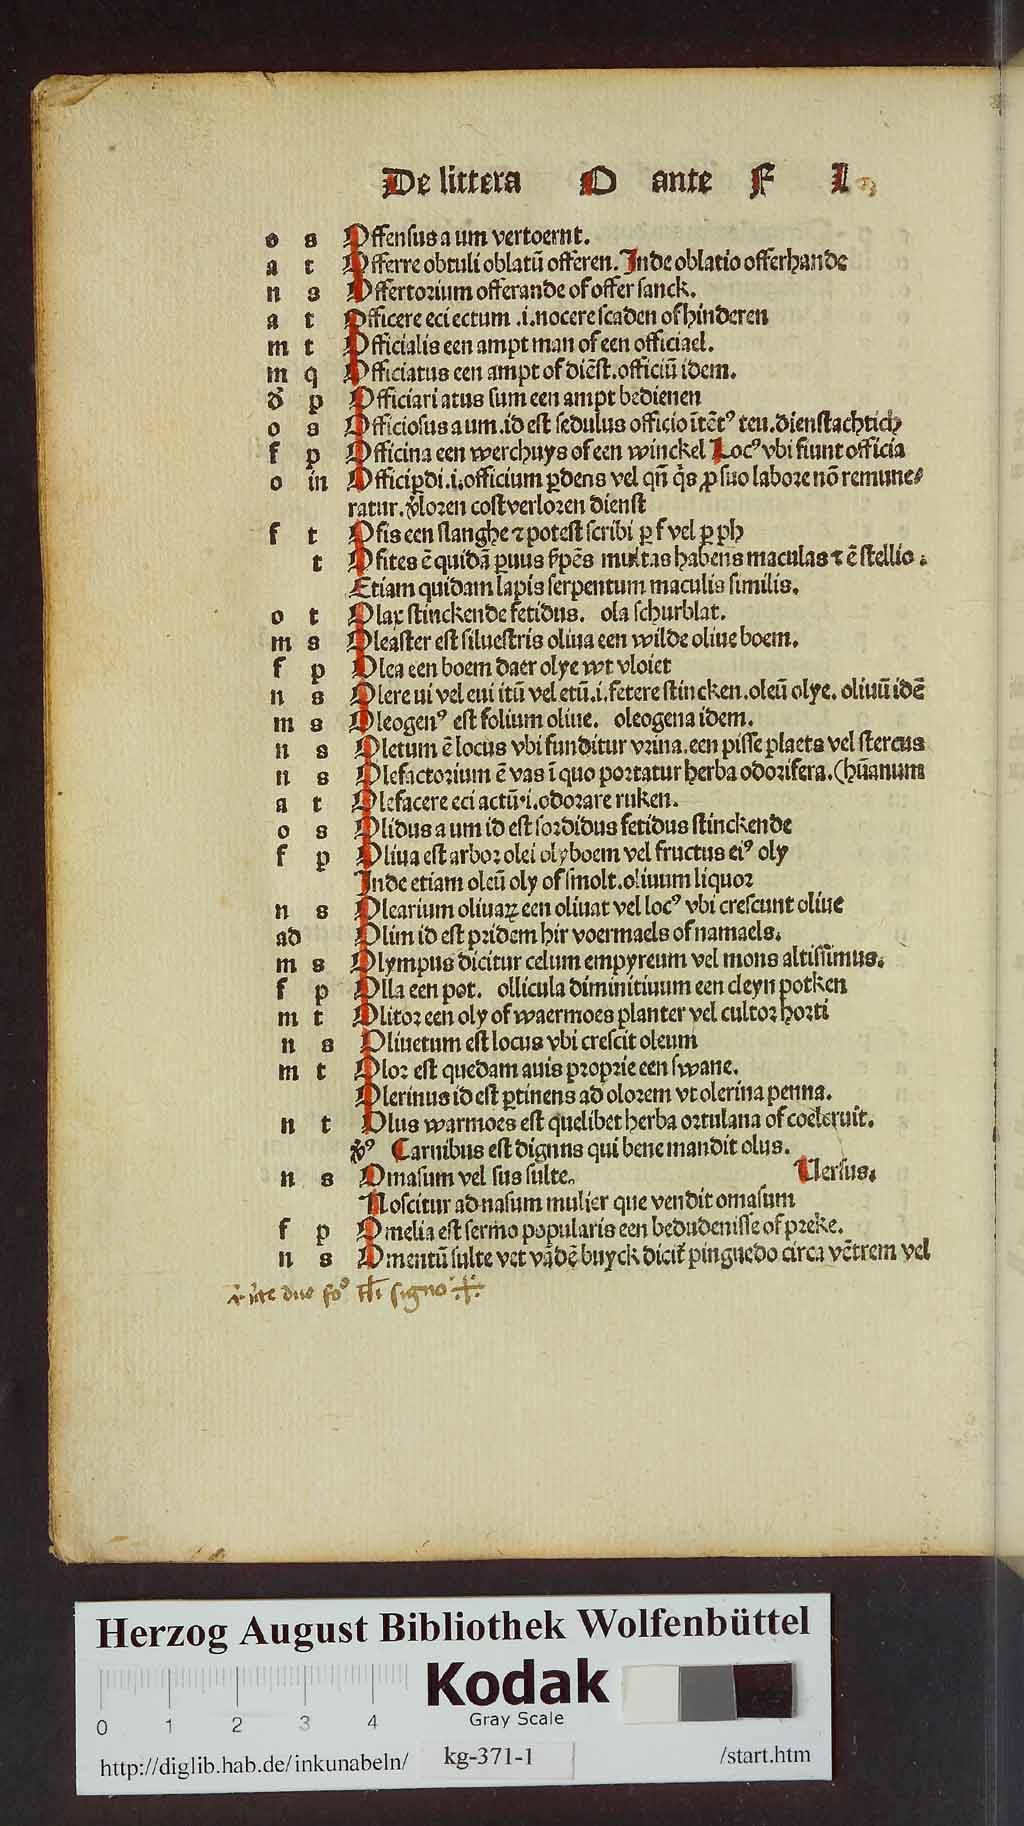 De littera O ante F L
o s Offensus a um vertoernt.
a t Offerre obtuli oblatū offeren. Inde oblatio offerhande
n s Offertorium offerande of offer sanck.
a t Officere eci ectum .i. nocere scaden of hinderen
m t Officialis een ampt man of een officiael.
m q Officiatus een ampt of diēst. officiū idem.
d̄ p Officiari atus sum een ampt bedienen
o s Officiosus a um. id est sedulus officio ītēt⁹ teu. dienstachtich
f p Officina een werchuys of een winckel Loc⁹ vbi fiunt officia
o in Officiꝑdi .i. officium ꝑdens vel qn̄ q̇s ꝓ suo labore nō remune⸗
ratur. v̄loren cost verloren dienst
f t Ofis een slanghe ⁊ potest scribi ꝑ f vel ꝑ ph
t Ofites ē quidā ꝑuus s̄pēs multas habens maculas ⁊ ē stellio.
Etiam quidam lapis serpentum maculis similis.
o t Olax stinckende fetidus. ola schurblat.
m s Oleaster est siluestris oliua een wilde oliue boem.
f p Olea een boem daer olye wt vloiet
n s Olere ui vel eui itū vel etū .i. fetere stincken. oleū olye. oliuū idē
m s Oleogen⁹ est folium oliue. oleogena idem.
n s Oletum ē locus vbi funditur vrina. een pisse plaets vel stercus
n s Olefactorium ē vas ī quo portatur herba odorifera. (hūanum
a t Olefacere eci actū .i. odorare ruken.
o s Olidus a um id est sordidus fetidus stinckende
f p Oliua est arbor olei olyboem vel fructus ei⁹ oly
Inde etiam oleū oly of smolt. oliuum liquor
n s Olearium oliuaꝝ een oliuat vel loc⁹ vbi crescunt oliue
ad Olim id est pridem hir voermaels of namaels.
m s Olympus dicitur celum empyreum vel mons altissimus.
f p Olla een pot. ollicula diminitiuum een cleyn potken
m t Olitor een oly of waermoes planter vel cultor horti
n s Oliuetum est locus vbi crescit oleum
m t Olor est quedam auis proprie een swane.
Olerinus id est ꝑtinens ad olorem vt olerina penna.
n t Olus warmoes est quelibet herba ortulana of coelcruīt.
v̄⁹ Carnibus est dignns qui bene mandit olus.
n s Omasum vel sus sulte. Uersus.
Noscitur ad nasum mulier que vendit omasum
f p Omelia est sermo popularis een bedudenisse of preke.
n s Omentū sulte vet vādē buyck dicit̄ pinguedo circa vētrem vel
signo
Herzog August Bibliothek Wolfenbüttel
Kodak
Gray Scale
0 1 2 3 4
http://diglib.hab.de/inkunabeln/ kg-371-1 /start.htm